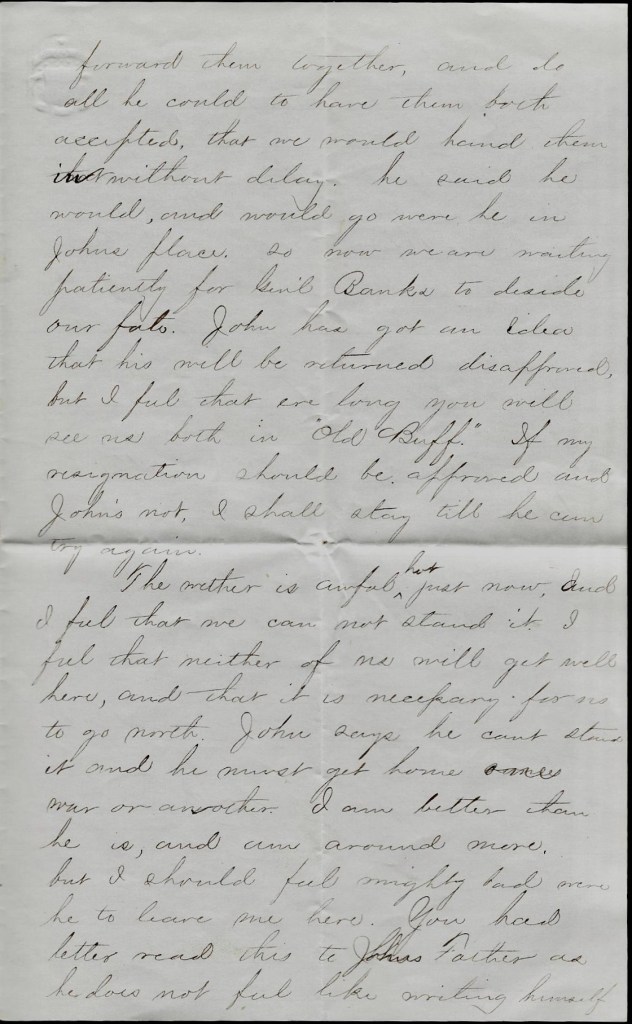 forward them together, and do
all he could to have them both
accepted, that we would hand them
without delay. he said he
would, and would go were he in
Johns place. so now we are waiting
patiently for Genl Banks to deside
our fate. John has got an idea
that his will be returned disapproved,
but I feel that ere long you will
see us both in "Old Buff." If my
resignation should be approved and
John's not, I shall stay till he can
try again.
The wether is awful hot just now, and
I feel that we can not stand it. I
feel that neither of us will get well
here, and that it is necessary for us
to go north. John says he cant stand
it and he must get home
way or another. I am better than
he is, and am around more.
but I should feel mighty bad were
he to leave me here. You had
better read this to Johns Father as
he does not feel like writing himself